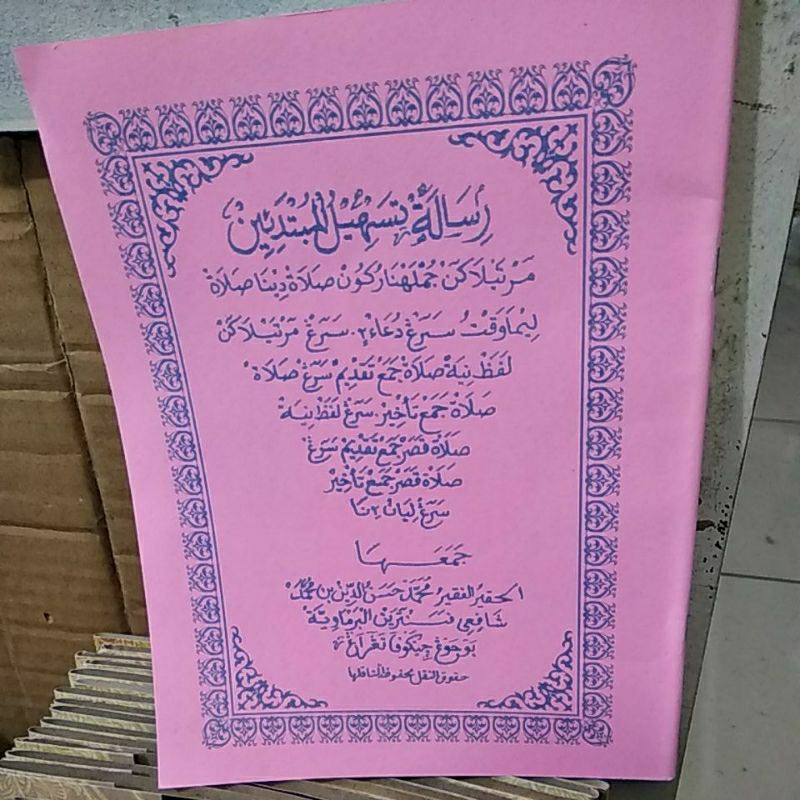 رِسَالَةُ تَسْهِيْلِ الْمُبْتَدِئِيْنَ
مَرْتَيْلَاكَنْ جُمْلَهْنَا رُكُوْنْ صَلَاةْ دِيْنَا صَلَاةْ
لِيْمَا وَقْتُ سَرَڠْ دُعَاءْ٢. سَرَڠْ مَرْتَيْلَاكَنْ
لَفَظْ نِيَةْ صَلَاةْ جَمَعْ تَقْدِيْمْ سَرَڠْ صَلَاةْ
صَلَاةْ جَمَعْ تَأْخِيْرْ. سَرَڠْ لَفَظْ نِيَةْ
صَلَاةْ قَصَرْ جَمَعْ تَقْدِيْمْ سَرَڠْ
صَلَاةْ قَصَرْ جَمَعْ تَأْخِيْرْ
سَرَڠْ لِيَانْ٢ نَا
جَمَعَهَا
الحقير الفقير مُحَمَّدْ حَسَنُ الدِّيْنِ بن مُحَمَّدْ
شَافِعِي
حقوق النقل محفوظ لناقلها